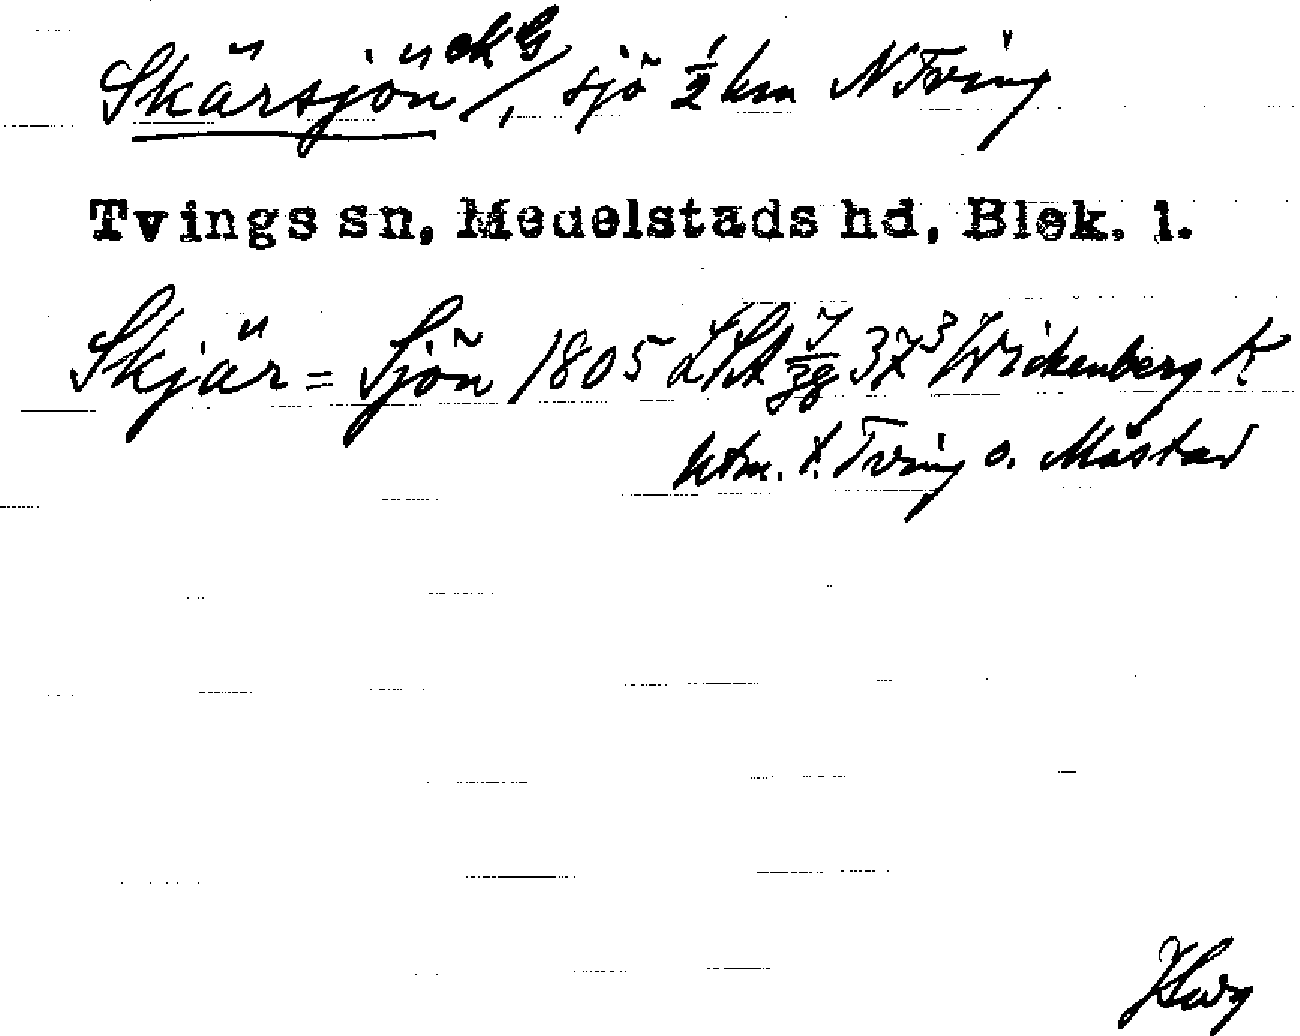 Skärsjön ekG/, sjö ½ km N Tving
Tvings sn, Medelstads hd, Blek. l.
Skjär=Sjön 1805 LSA 37³ Wickenberg K
utm. t. Tving o. Måstad